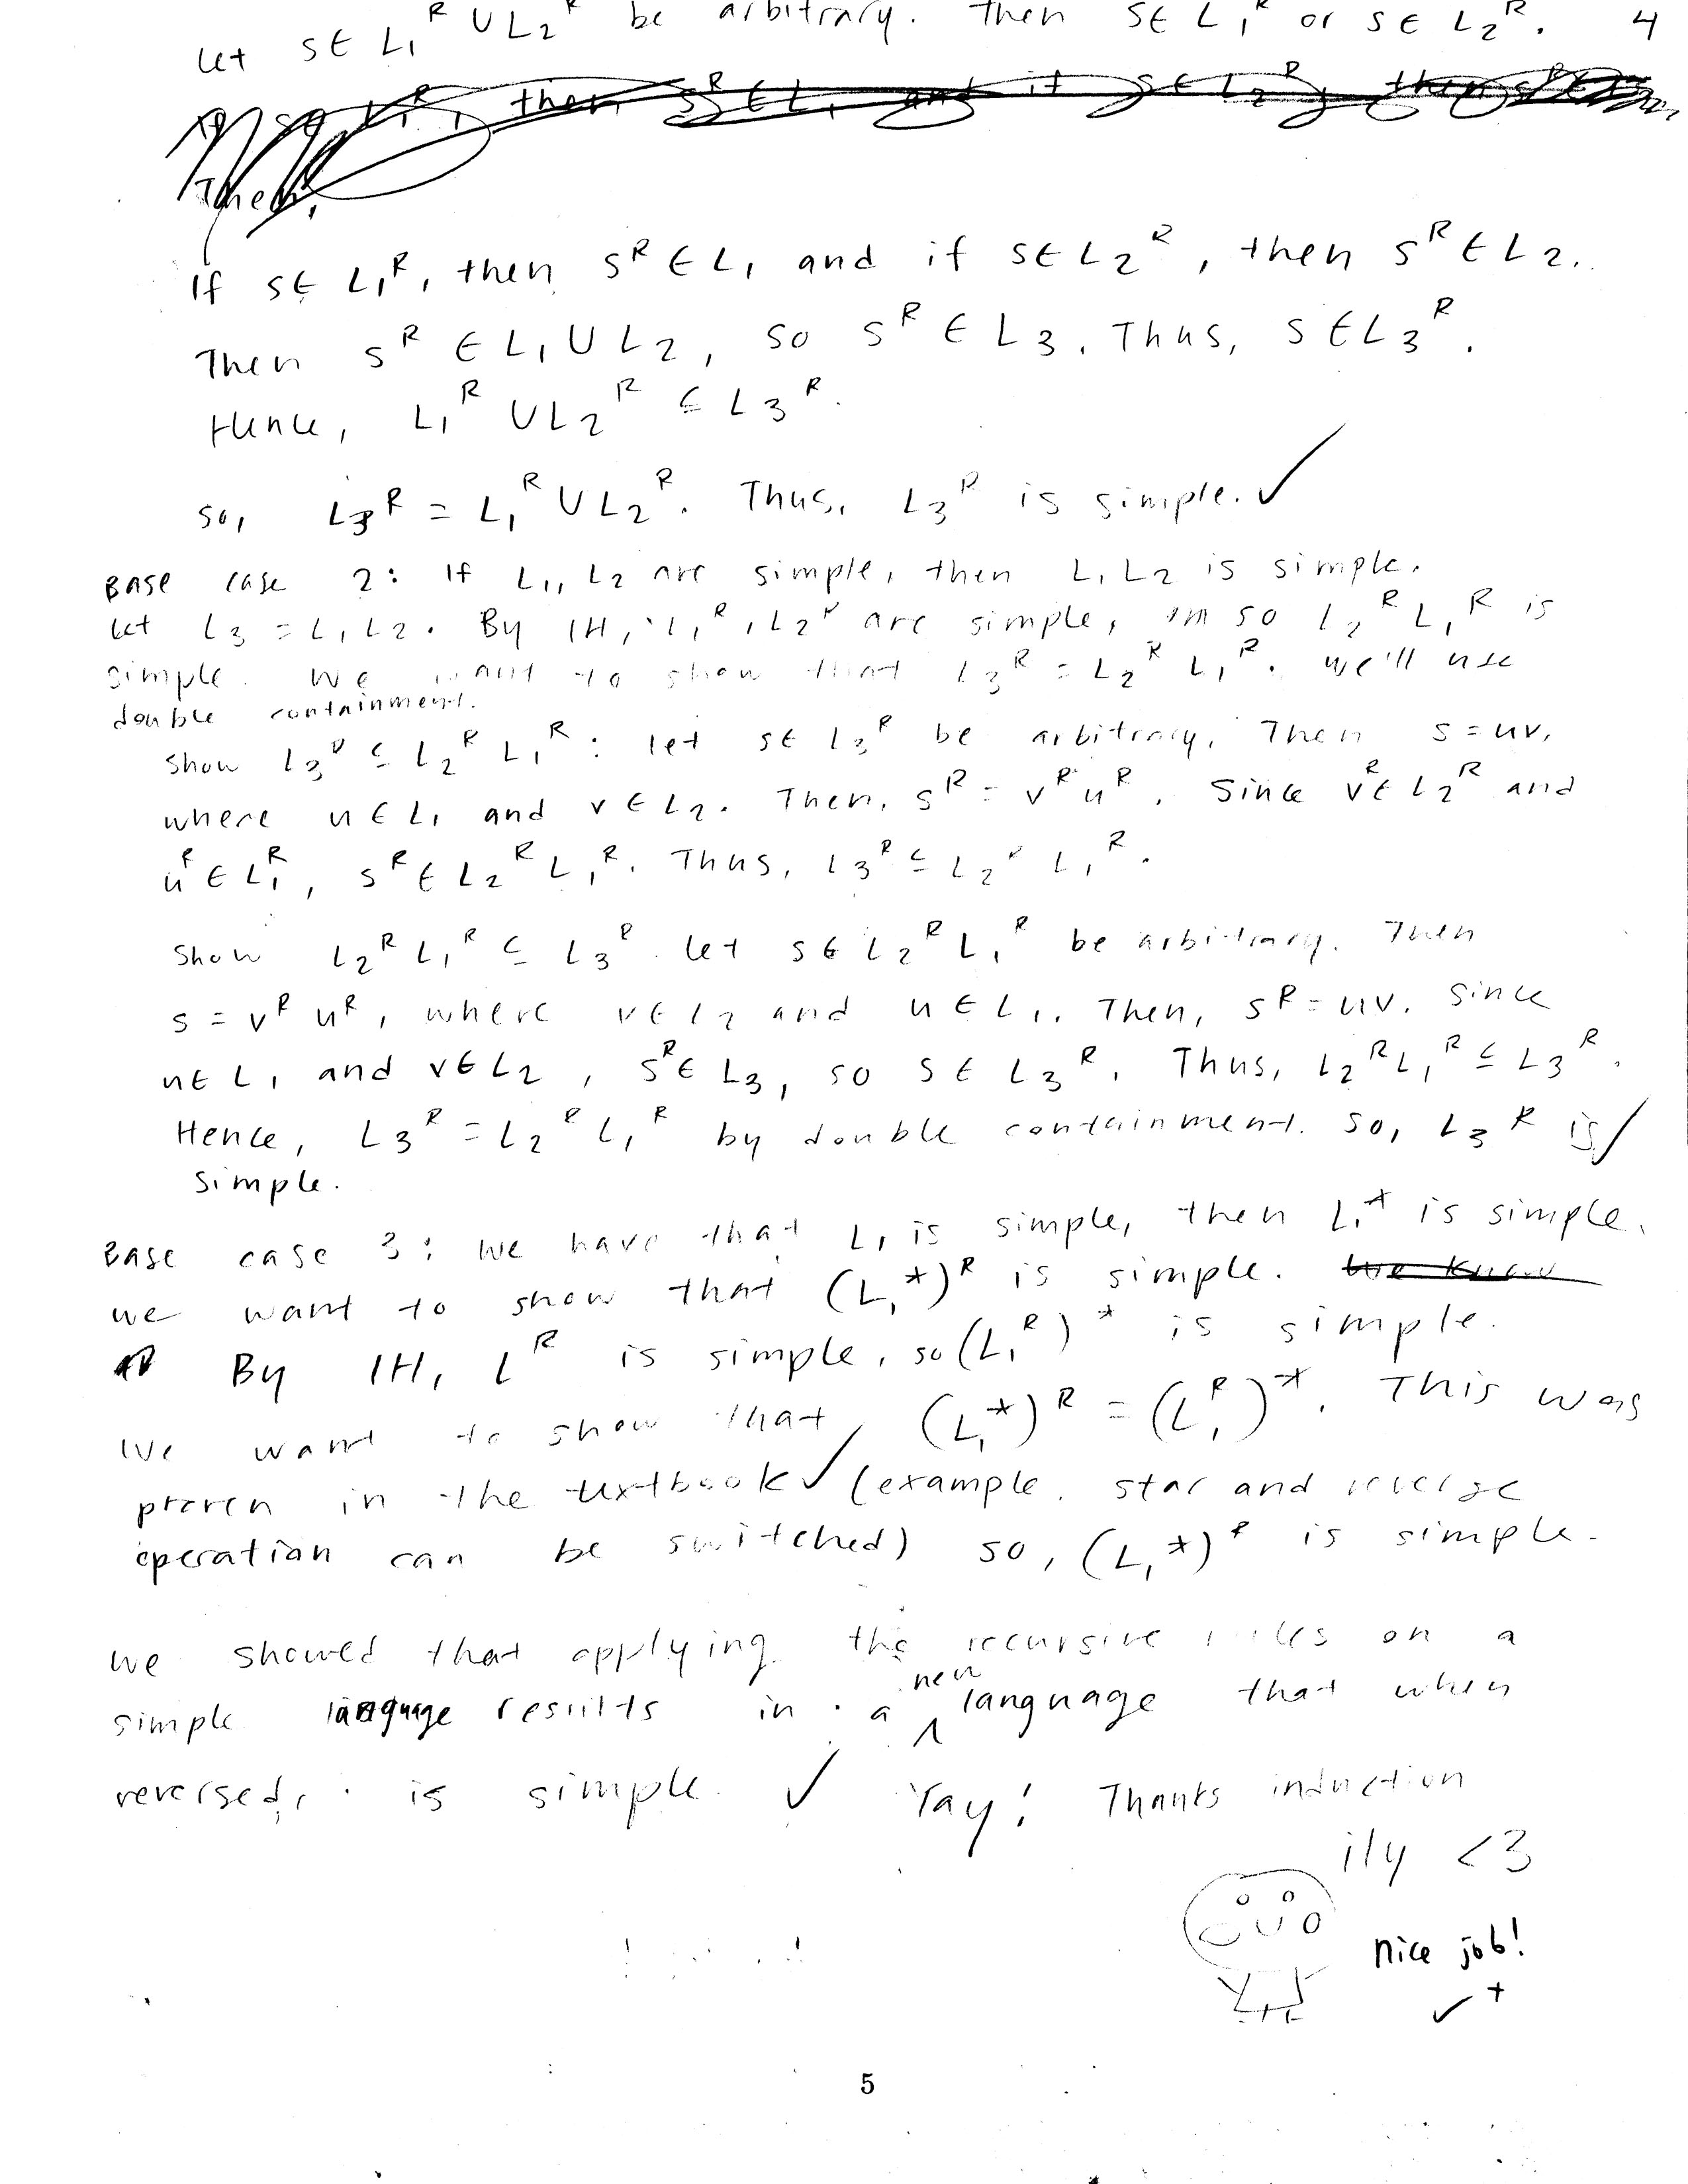 Let s ∈ L₁ᴿ ∪ L₂ᴿ be arbitrary. Then s ∈ L₁ᴿ or s ∈ L₂ᴿ. 4
then sᴿ ∈ L₁ and if s ∈ L₂ᴿ, then
Then,
If s ∈ L₁ᴿ, then sᴿ ∈ L₁ and if s ∈ L₂ᴿ, then sᴿ ∈ L₂.
Then sᴿ ∈ L₁ ∪ L₂, so sᴿ ∈ L₃. Thus, s ∈ L₃ᴿ.
Hence, L₁ᴿ ∪ L₂ᴿ ⊆ L₃ᴿ.
So, L₃ᴿ = L₁ᴿ ∪ L₂ᴿ. Thus, L₃ᴿ is simple. ✓
Base case 2: If L₁, L₂ are simple, then L₁L₂ is simple.
Let L₃ = L₁L₂. By IH, L₁ᴿ, L₂ᴿ are simple, so L₂ᴿL₁ᴿ is
simple. We want to show that L₃ᴿ = L₂ᴿL₁ᴿ. We'll use
double containment.
Show L₃ᴿ ⊆ L₂ᴿL₁ᴿ: let s ∈ L₃ᴿ be arbitrary. Then s = uv,
where u ∈ L₁ and v ∈ L₂. Then, sᴿ = vᴿuᴿ. Since vᴿ ∈ L₂ᴿ and
uᴿ ∈ L₁ᴿ, sᴿ ∈ L₂ᴿL₁ᴿ. Thus, L₃ᴿ ⊆ L₂ᴿL₁ᴿ.
Show L₂ᴿL₁ᴿ ⊆ L₃ᴿ. Let s ∈ L₂ᴿL₁ᴿ be arbitrary. Then
s = vᴿuᴿ, where v ∈ L₂ and u ∈ L₁. Then, sᴿ = uv. Since
u ∈ L₁ and v ∈ L₂, sᴿ ∈ L₃, so s ∈ L₃ᴿ. Thus, L₂ᴿL₁ᴿ ⊆ L₃ᴿ.
Hence, L₃ᴿ = L₂ᴿL₁ᴿ by double containment. So, L₃ᴿ is ✓
simple.
Base case 3: We have that L₁ is simple, then L₁* is simple.
We want to show that (L₁*)ᴿ is simple. We know
By IH, Lᴿ is simple, so (L₁ᴿ)* is simple.
We want to show that (L₁*)ᴿ = (L₁ᴿ)*. This was
proven in the textbook ✓ (example. star and reverse
operation can be switched) so, (L₁*)ᴿ is simple.
We showed that applying the recursive rules on a
simple language results in a new language that when
reversed, is simple. ✓ Yay! Thanks induction
ily <3
nice job!
✓+
5